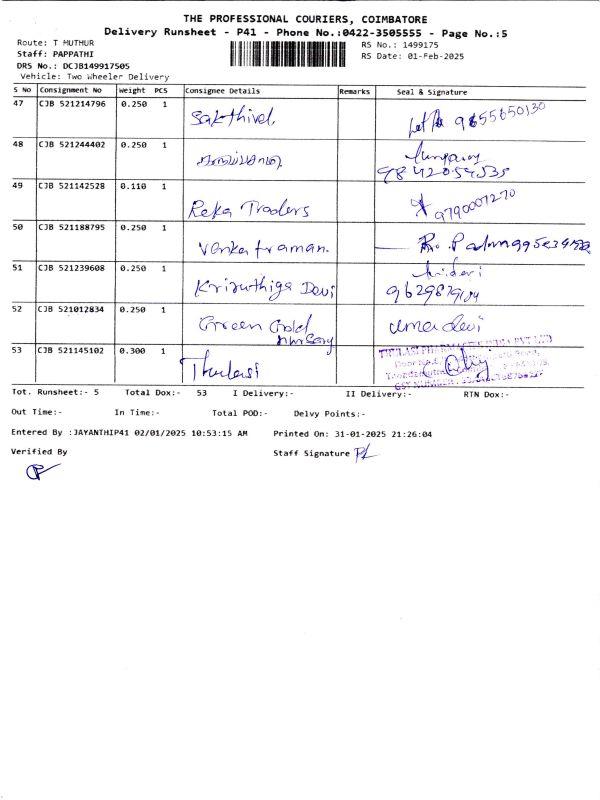 THE PROFESSIONAL COURIERS, COIMBATORE
Delivery Runsheet - P41 - Phone No.:0422-3505555 - Page No.:5
Route: T MUTHUR
RS No.: 1499175
Staff: PAPPATHI
RS Date: 01-Feb-2025
DRS No.: DCJB149917505
Vehicle: Two Wheeler Delivery
S No Consignment No Weight PCS Consignee Details Remarks Seal & Signature
47 CJB 521214796 0.250 1 Sakthivel, 9655650130
48 CJB 521244402 0.250 1
9842054535
49 CJB 521142528 0.110 1 Reka Traders 9790007270
50 CJB 521188795 0.250 1 Venkatraman.
51 CJB 521239608 0.250 1 Kriruthiga Devi
52 CJB 521012834 0.250 1 Green Gold Uma devi
53 CJB 521145102 0.300 1 Thulasi
Tot. Runsheet:- 5 Total Dox:- 53 I Delivery:- II Delivery:- RTN Dox:-
Out Time:- In Time:- Total POD:- Delvy Points:-
Entered By :JAYANTHIP41 02/01/2025 10:53:15 AM Printed On: 31-01-2025 21:26:04
Verified By Staff Signature